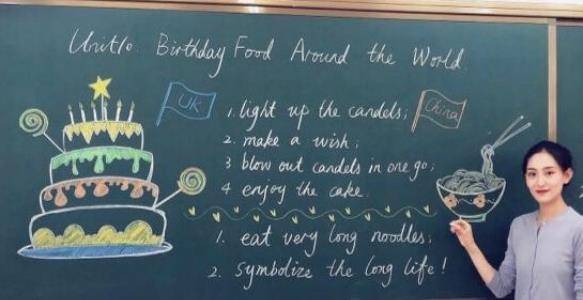 Unit10 Birthday Food Around the World.
UK
China
1. light up the candels;
2. make a wish;
3 blow out candels in one go;
4 enjoy the cake.
1. eat very long noodles;
2. symbolize the long life!